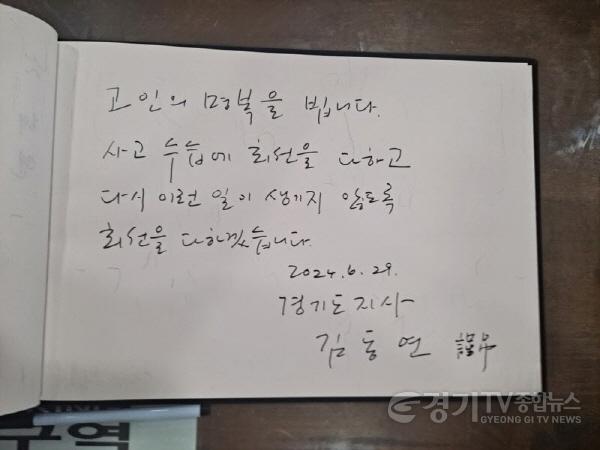 고인의 명복을 빕니다.
사고 수습에 최선을 다하고
다시 이런 일이 생기지 않도록
최선을 다하겠습니다.
2024.6.29.
경기도지사
김동연
구역
경기TV종합뉴스
GYEONG GI TV NEWS